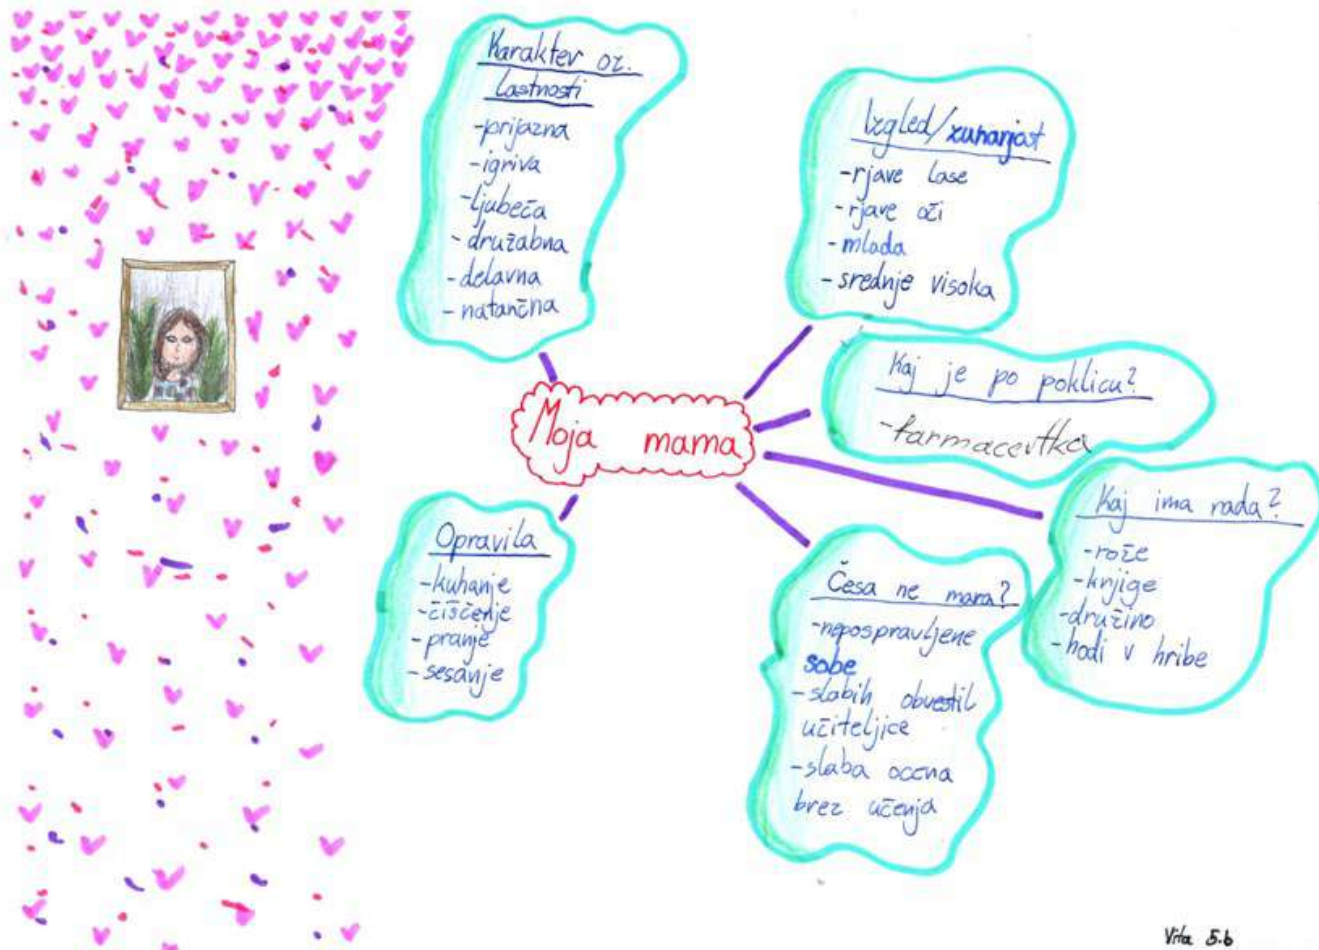 Karakter oz.
lastnosti
-prijazna
-igriva
-ljubeča
-družabna
-delavna
-natančna
Izgled/zunanjost
-rjave lase
-rjave oči
-mlada
-srednje visoka
Kaj je po poklicu?
-farmacevtka
Moja mama
Kaj ima rada?
-rože
-knjige
-družino
-hodi v hribe
Opravila
-kuhanje
-čiščenje
-pranje
-sesanje
Česa ne mara?
-nepospravljene
sobe
-slabih obvestil
učiteljice
-slaba ocena
brez učenja
Vita 5.b